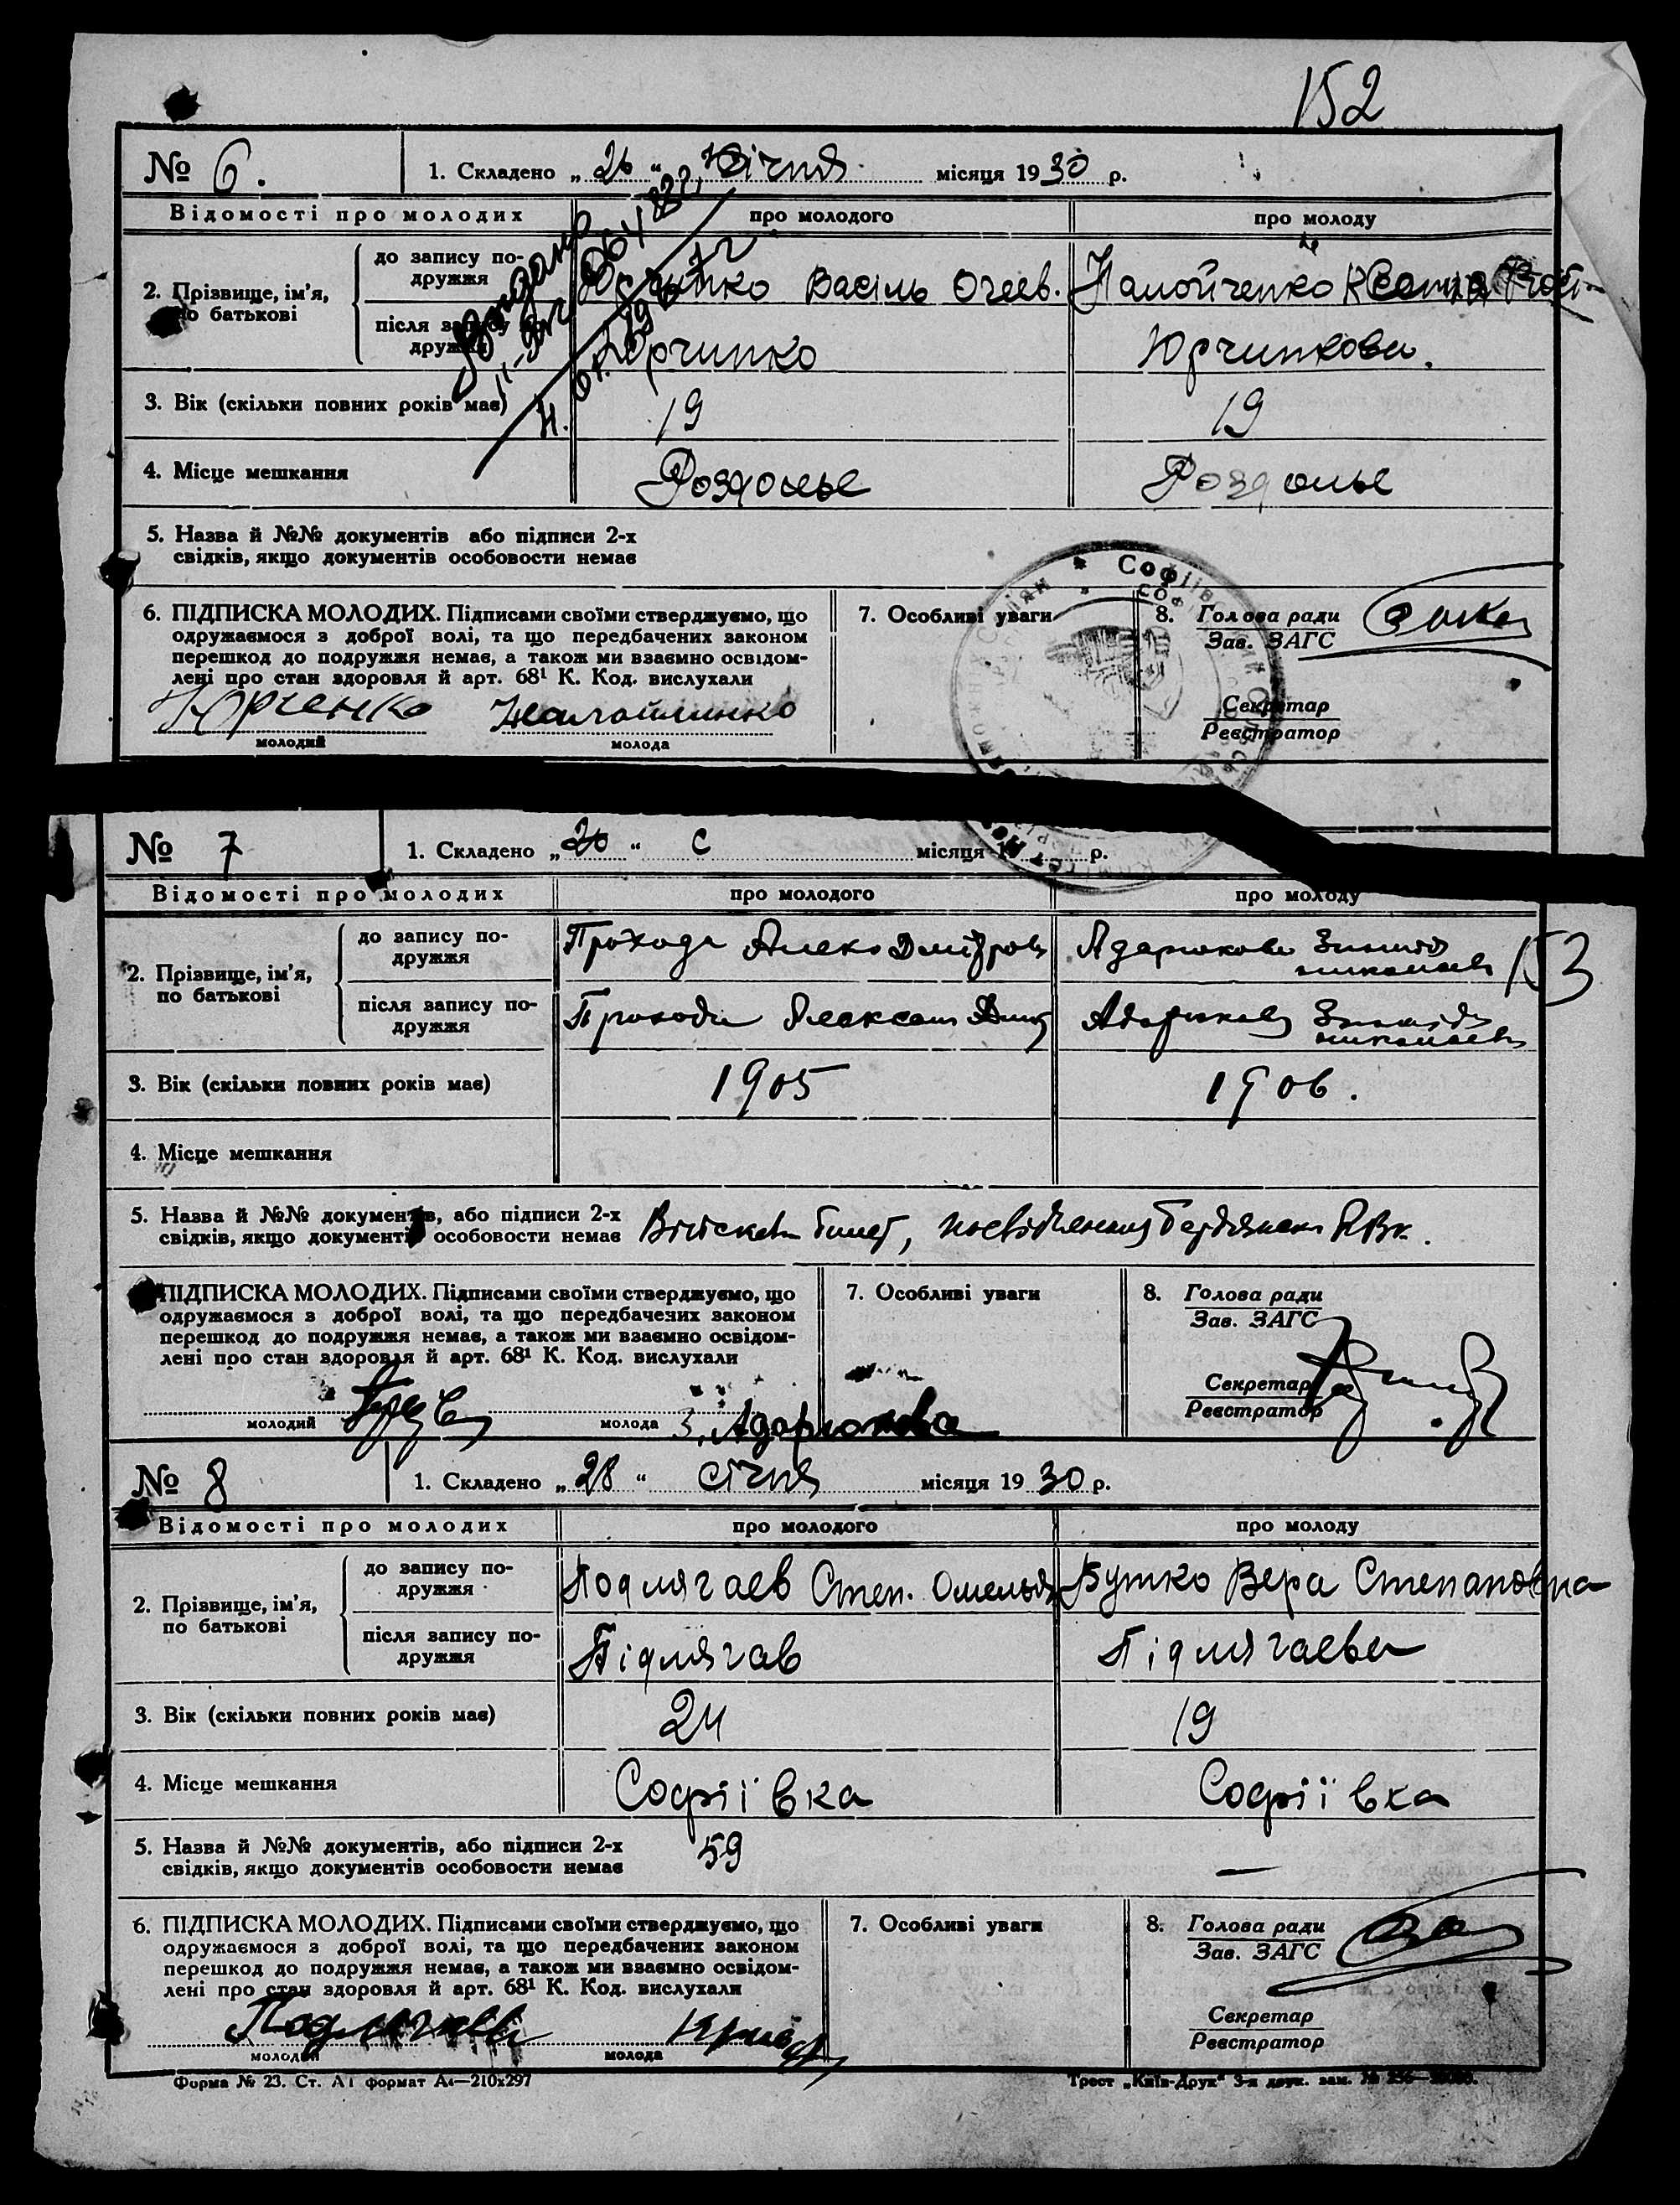 152
№ 6. 1. Складено „26“ Січня місяця 1930 р.
Відомості про молодих про молодого про молоду
2. Прізвище, ім'я, по батькові
до запису по-
дружжя
Василь Ксенія
після запису по-
дружжя
Юрчипко Юрчипкова.
3. Вік (скільки повних років має) 19 19
4. Місце мешкання Роздолье Роздолье
5. Назва й №№ документів або підписи 2-х
свідків, якщо документів особовости немає
6. ПІДПИСКА МОЛОДИХ. Підписами своїми стверджуємо, що
одружаємося з доброї волі, та що передбачених законом
перешкод до подружжя немає, а також ми взаємно освідом-
лені про стан здоровля й арт. 68¹ К. Код. вислухали
Юрченко
молодий молода
7. Особливі уваги
8. Голова ради
Зав. ЗАГС
Секретар
Реєстратор
№ 7 1. Складено „26“ С місяця р.
Відомості про молодих про молодого про молоду
2. Прізвище, ім'я,
по батькові
до запису по-
дружжя
Прохода Алекс Дмітров Адарюкова Зинаида
николаев
після запису по-
дружжя
Прохода Алексан Дмит Адарюкова Зинаида
николаев
153
3. Вік (скільки повних років має) 1905 1906.
4. Місце мешкання
5. Назва й №№ документів, або підписи 2-х
свідків, якщо документів особовости немає
билет, посвідчення РВК.
ПІДПИСКА МОЛОДИХ. Підписами своїми стверджуємо, що
одружаємося з доброї волі, та що передбачених законом
перешкод до подружжя немає, а також ми взаємно освідом-
лені про стан здоровля й арт. 68¹ К. Код. вислухали
молодий молода З. Адарюкова
7. Особливі уваги
8. Голова ради
Зав. ЗАГС
Секретар
Реєстратор
№ 8 1. Складено „28“ січня місяця 1930 р.
Відомості про молодих про молодого про молоду
2. Прізвище, ім'я,
по батькові
до запису по-
дружжя
Подлягаев Степ. Омельян Бутко Вера Степановна
після запису по-
дружжя
Підлягаєв Підлягаева
3. Вік (скільки повних років має) 24 19
4. Місце мешкання Софіївка Софіївка
5. Назва й №№ документів, або підписи 2-х
свідків, якщо документів особовости немає
59 —
6. ПІДПИСКА МОЛОДИХ. Підписами своїми стверджуємо, що
одружаємося з доброї волі, та що передбачених законом
перешкод до подружжя немає, а також ми взаємно освідом-
лені про стан здоровля й арт. 68¹ К. Код. вислухали
Подлягаев
молодий молода
7. Особливі уваги
8. Голова ради
Зав. ЗАГС
Секретар
Реєстратор
Форма № 23. Ст. А1 формат А4—210х297
Трест „Київ-Друк“ 3-я друк. зам. №